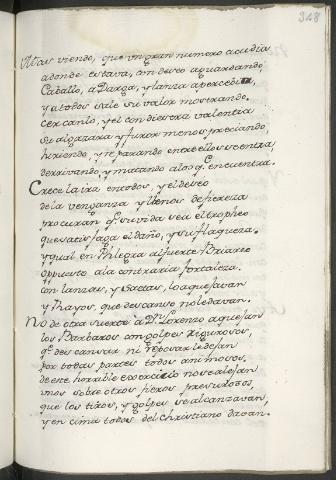 318
Mas viendo, que un gran numero acudia
adonde estava, con deseo aguardando,
Caballo, a Darga, y lanza apercebia,
y a todos sale su valor mostrando.
cercanlo, y el con diestra valentia
su algazara, y furor menos preciando,
hiriendo, y reparando entre ellos se entra,
derrivando, y matando a los q.e encuentra.
Crece la ira en todos, y el deseo
de la venganza, y llenos de fiereza
procuran q.e su vida sea el tropheo
que satisfaga el daño, y su flaqueza.
y qual en Phlegra al fuerte Briareo
opuesto a la contraria fortaleza.
con lanzas, y saetas, lo aquejavan
y Rayos, que descanso no le davan.
No de otra suerte a D.n Lorenzo aquejan
los Barbaros con golpes rigurosos,
q.e descansar ni reposar le dejan
por todas partes todos animosos,
de este horrible exercicio no se alejan
unos sobre otros fieros presurosos,
que los tiros, y golpes se alcanzavan,
y en cima todos del christiano davan.